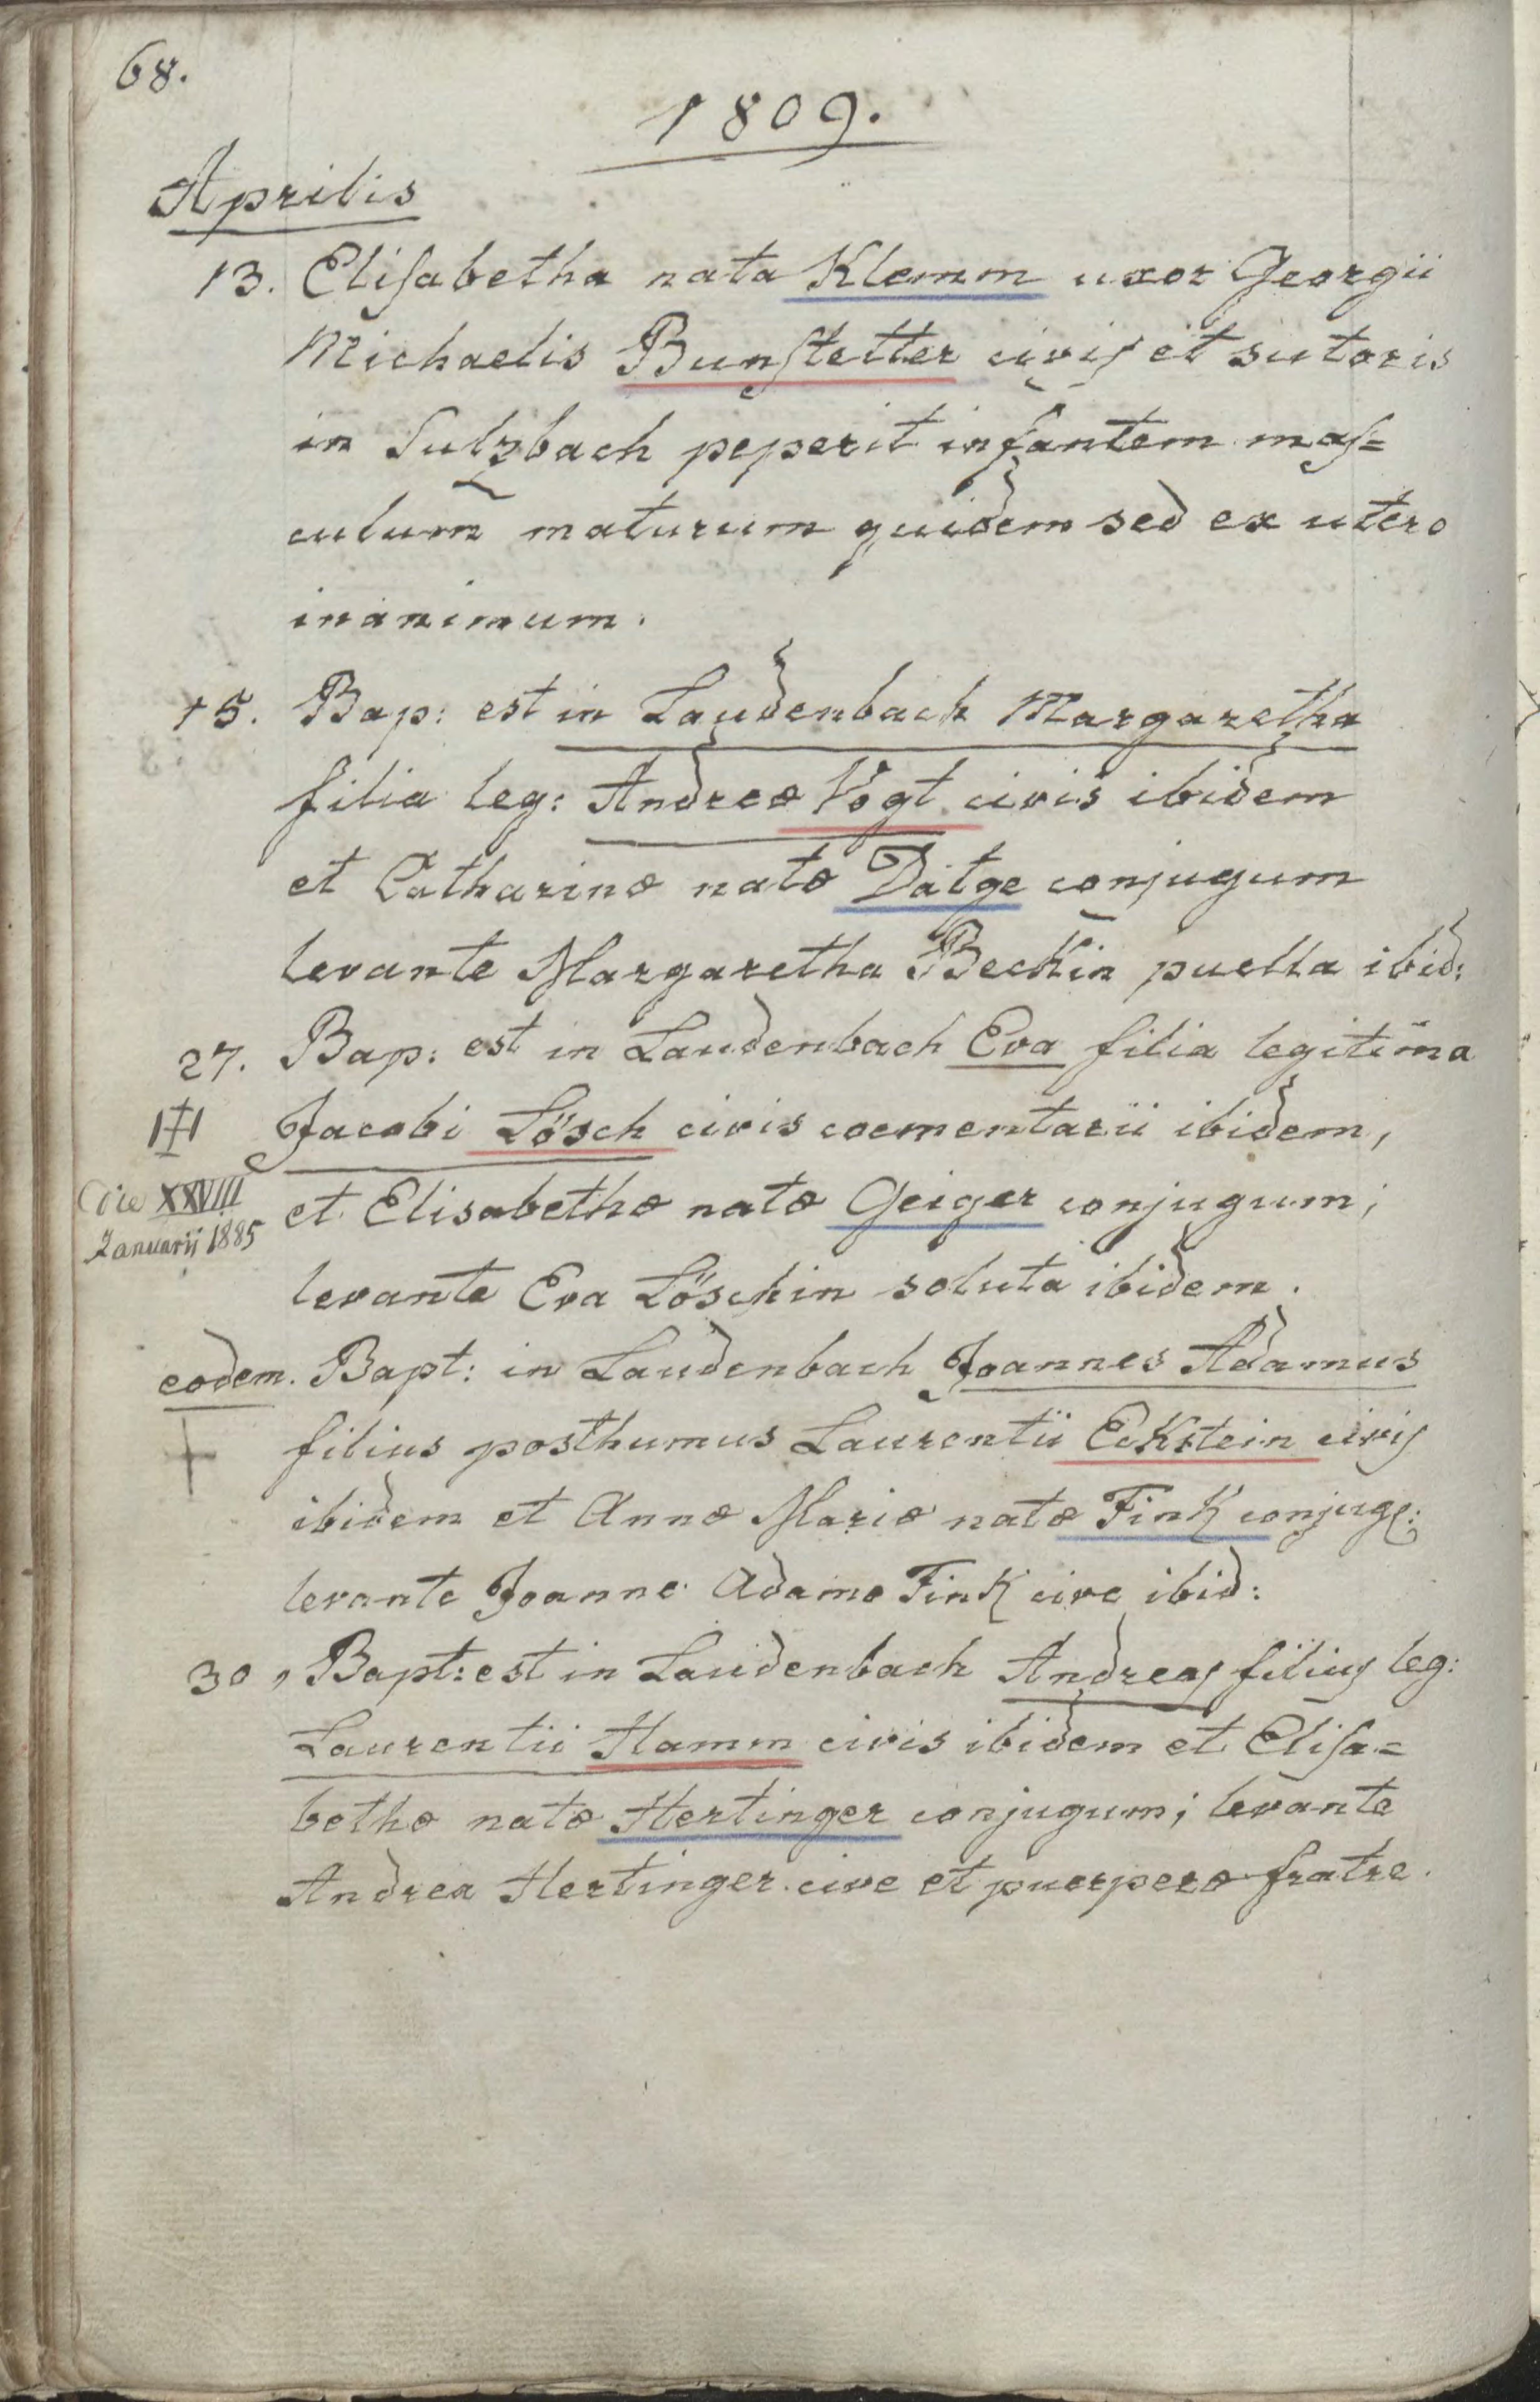 68.
1809.
Aprilis
13. Eliſabetha nata Klemm uxor Georgii
Michaelis Bunſtetter civiſ et sutoris
in Sulzbach peperit infantem maſ=
culum maturum quidem sed ex utero
inanimum.
15. Bap: est in Laudenbach Margaretha
filia leg: Andreæ Vogt civis ibidem
et Catharinæ natæ Datge conjugum
levante Margaretha Beckin puella ibid:
27. Bap: est in Laudenbach Eva filia legitima
Jacobi Lösch civis coementarii ibidem,
die XXVIII
Januarii 1885
et Elisabethæ natæ Geiger conjugum;
levante Eva Löschin soluta ibidem.
eodem. Bapt: in Laudenbach Joannes Adamus
filius posthumus Laurentii Eckstein civiſ
ibidem et Annæ Mariæ natæ Fink conjug:
levante Joanne Adamo Fink cive ibid:
30, Bapt: est in Laudenbach Andreaſ filiuſ leg:
Laurentii Hamm civis ibidem et Eliſa=
bethæ natæ Hertinger conjugum; levante
Andrea Hertinger cive et puerperæ fratre.